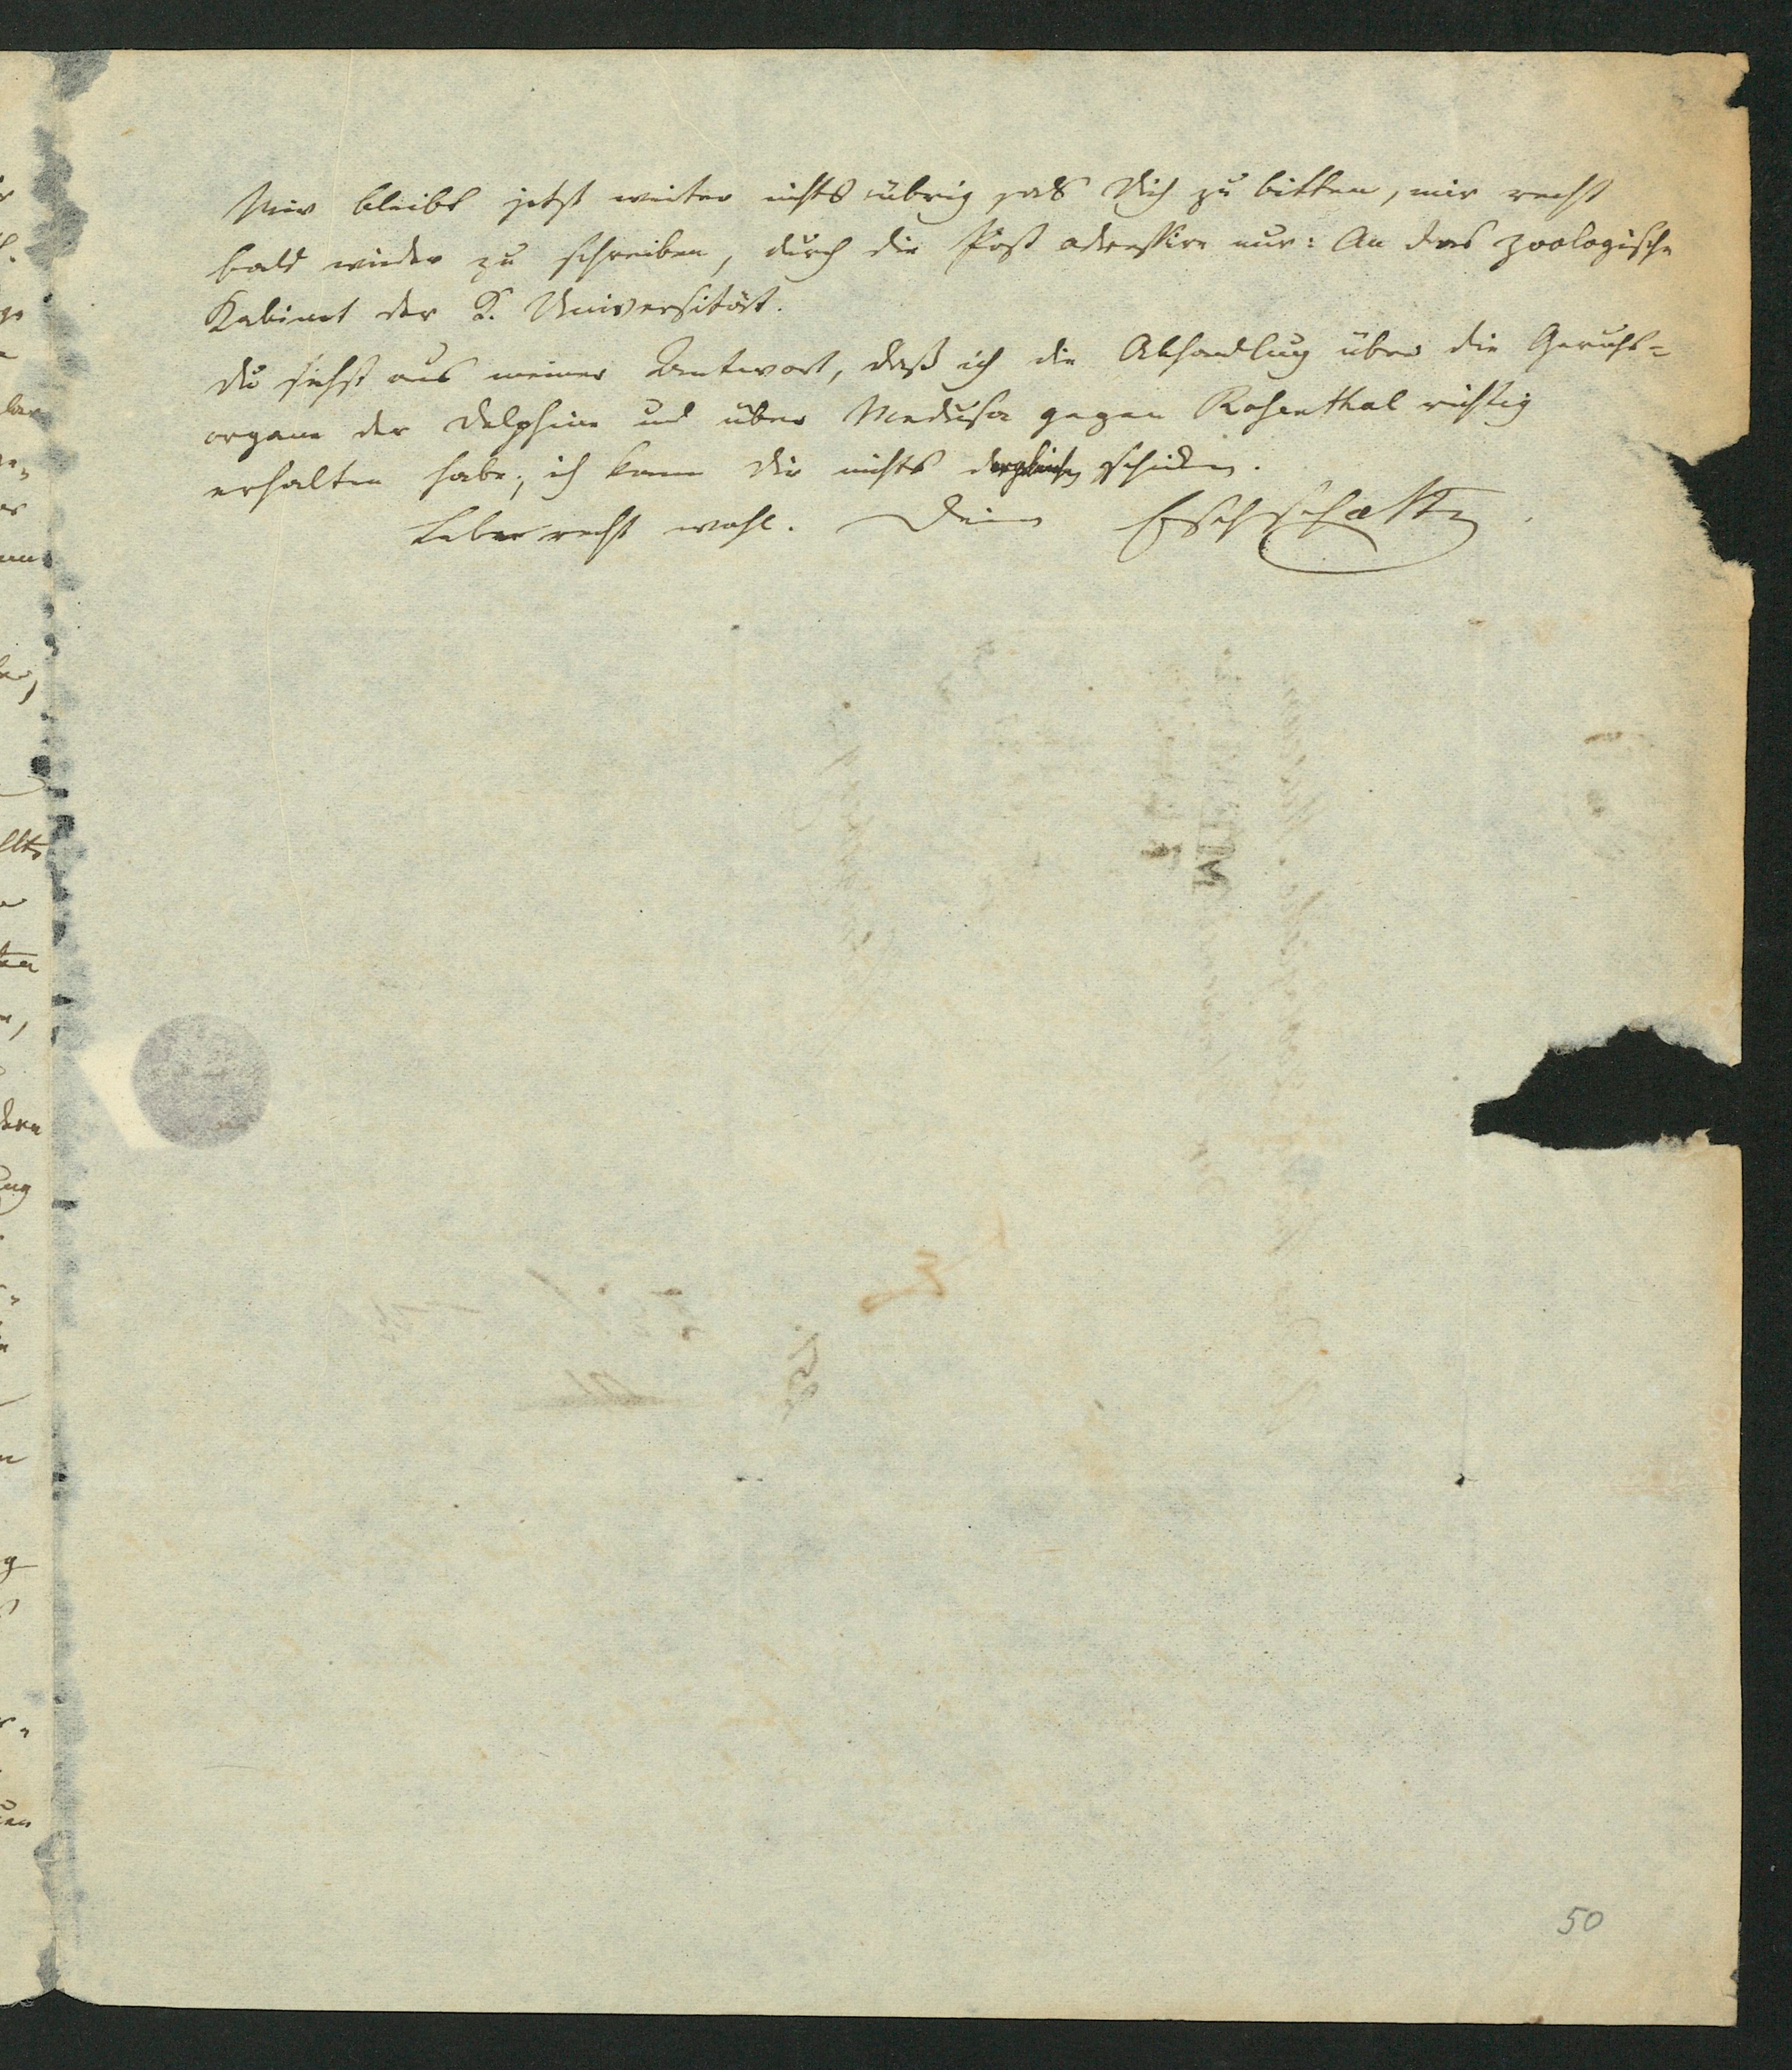 Mir bleibt jetzt weiter nichts übrig als Dich zu bitten, mir recht
bald wieder zu schreiben, durch die Post adressire nur: An das zoologische
Kabinet der K. Universität.
Du siehst aus meiner Antwort, daß ich die Abhandlung über die Geruchs-
organe der Delphine und über Medusa gegen Rosenthal richtig
erhalten habe; ich kann Dir nichts dergleichen schicken.
Lebe recht wohl. Dein Eschscholtz
50